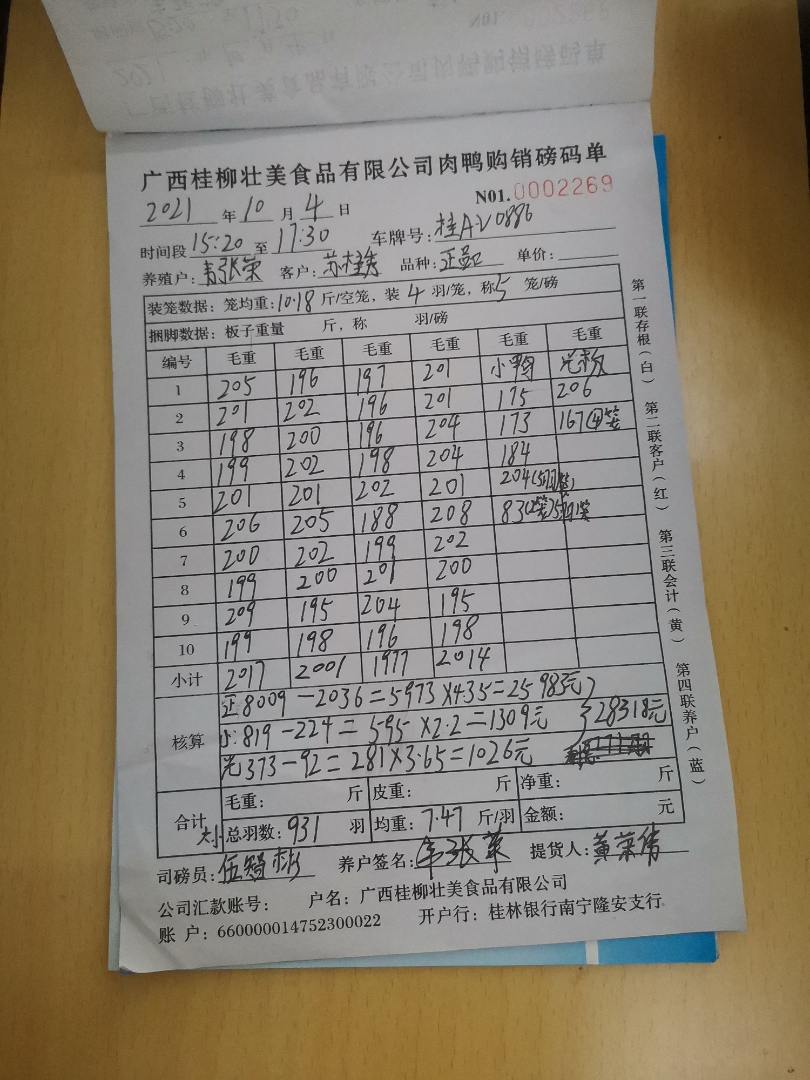 广西桂柳壮美食品有限公司肉鸭购销磅码单
N01.0002269
2021年10月4日
时间段15:20至17:30 车牌号:桂AV0886
养殖户: 客户:苏桂秀 品种:正品 单价:
装笼数据:笼均重:10.18斤/空笼,装4羽/笼,称5笼/磅
捆脚数据:板子重量 斤,称 羽/磅
编号 毛重 毛重 毛重 毛重 毛重 毛重
1 205 196 197 201 小鸭
2 201 202 196 201 175 206
3 198 200 196 204 173 167(4笼
4 199 202 198 204 184
5 201 201 202 201 204(5羽/笼)
6 206 205 188 208 83(2笼)5羽/笼
7 200 202 199 202
8 199 200 201 200
9 209 195 204 195
10 199 198 196 198
小计 2017 2001 1977 2014
核算
正:8009-2036=5973×4.35=25983元
小:819-224=595×2.2=1309元 }28318元
光373-92=281×3.65=1026元
合计
毛重: 斤 皮重: 斤 净重: 斤
大小
总羽数:931羽 均重:7.47斤/羽 金额: 元
司磅员:伍智彬 养户签名: 提货人:黄荣伟
公司汇款账号: 户名:广西桂柳壮美食品有限公司
账 户:660000014752300022 开户行:桂林银行南宁隆安支行
第一联存根(白) 第二联客户(红) 第三联会计(黄) 第四联养户(蓝)